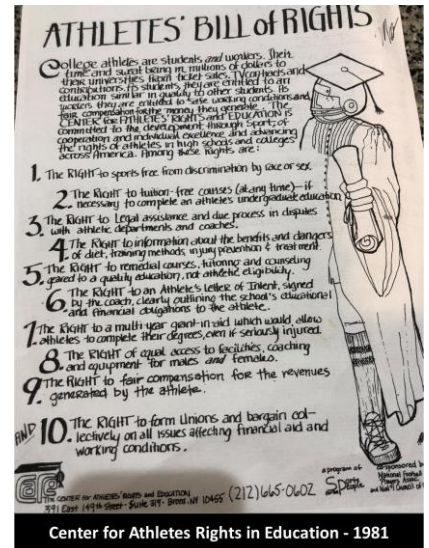 ATHLETES' BILL of RIGHTS
College athletes are students and workers. Their
time and sweat bring in millions of dollars to
their universities from ticket sales, TV contracts and
contributions. As students, they are entitled to an
education similar in quality to other students. As
workers they are entitled to safe working conditions and
fair compensation for the money they generate. The
CENTER for ATHLETES' RIGHTS and EDUCATION is
committed to the development, through sport, of
cooperation and individual excellence and advancing
the rights of athletes in high schools and colleges
across America. Among these rights are:
1. The RIGHT to sports free from discrimination by race or sex.
2. The RIGHT to tuition-free courses (at any time) — if
necessary to complete an athlete's undergraduate education
3. The RIGHT to Legal assistance and due process in disputes
with athletic departments and coaches.
4. The RIGHT to information about the benefits and dangers
of diet, training methods, injury prevention & treatment.
5. The RIGHT to remedial courses, tutoring and counseling
geared to a quality education, not athletic eligibility.
6. The RIGHT to an Athlete's Letter of Intent, signed
by the coach, clearly outlining the school's educational
and financial obligations to the athlete.
7. The RIGHT to a multi year grant-in aid which would allow
athletes to complete their degrees, even if seriously injured.
8. The RIGHT of equal access to facilities, coaching
and equipment for males and females.
9. The RIGHT to fair compensation for the revenues
generated by the athlete.
AND 10. The RIGHT to form Unions and bargain col-
lectively on all issues affecting financial aid and
working conditions.
The CENTER for ATHLETES' RIGHTS and EDUCATION
391 East 149th Street - Suite 319 - Bronx, NY 10455 (212) 665-0602
a program of
Sports for the People
co-sponsored by
National Football
Players Assoc.
and Nat'l Council of
Center for Athletes Rights in Education - 1981